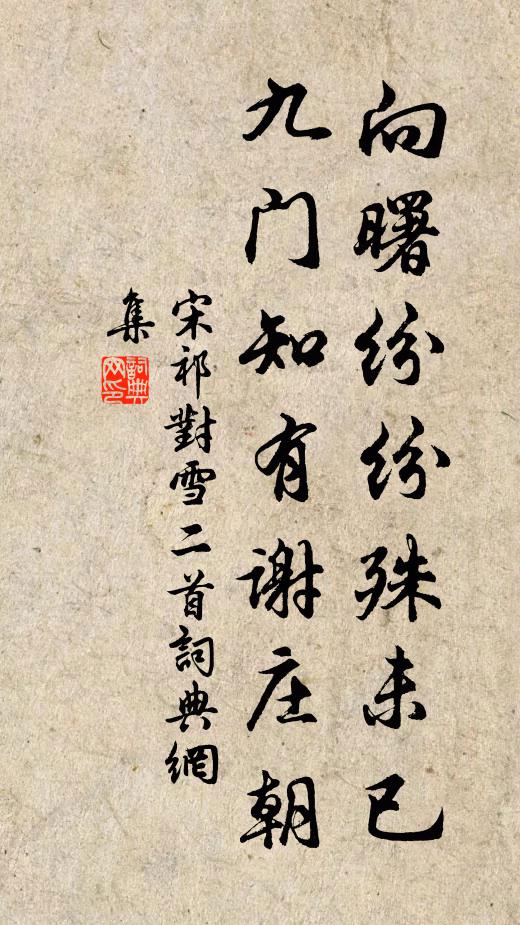 向曙纷纷殊未已
九门知有谢庄朝
宋祁對雪二首詞典網
集
詞典网印